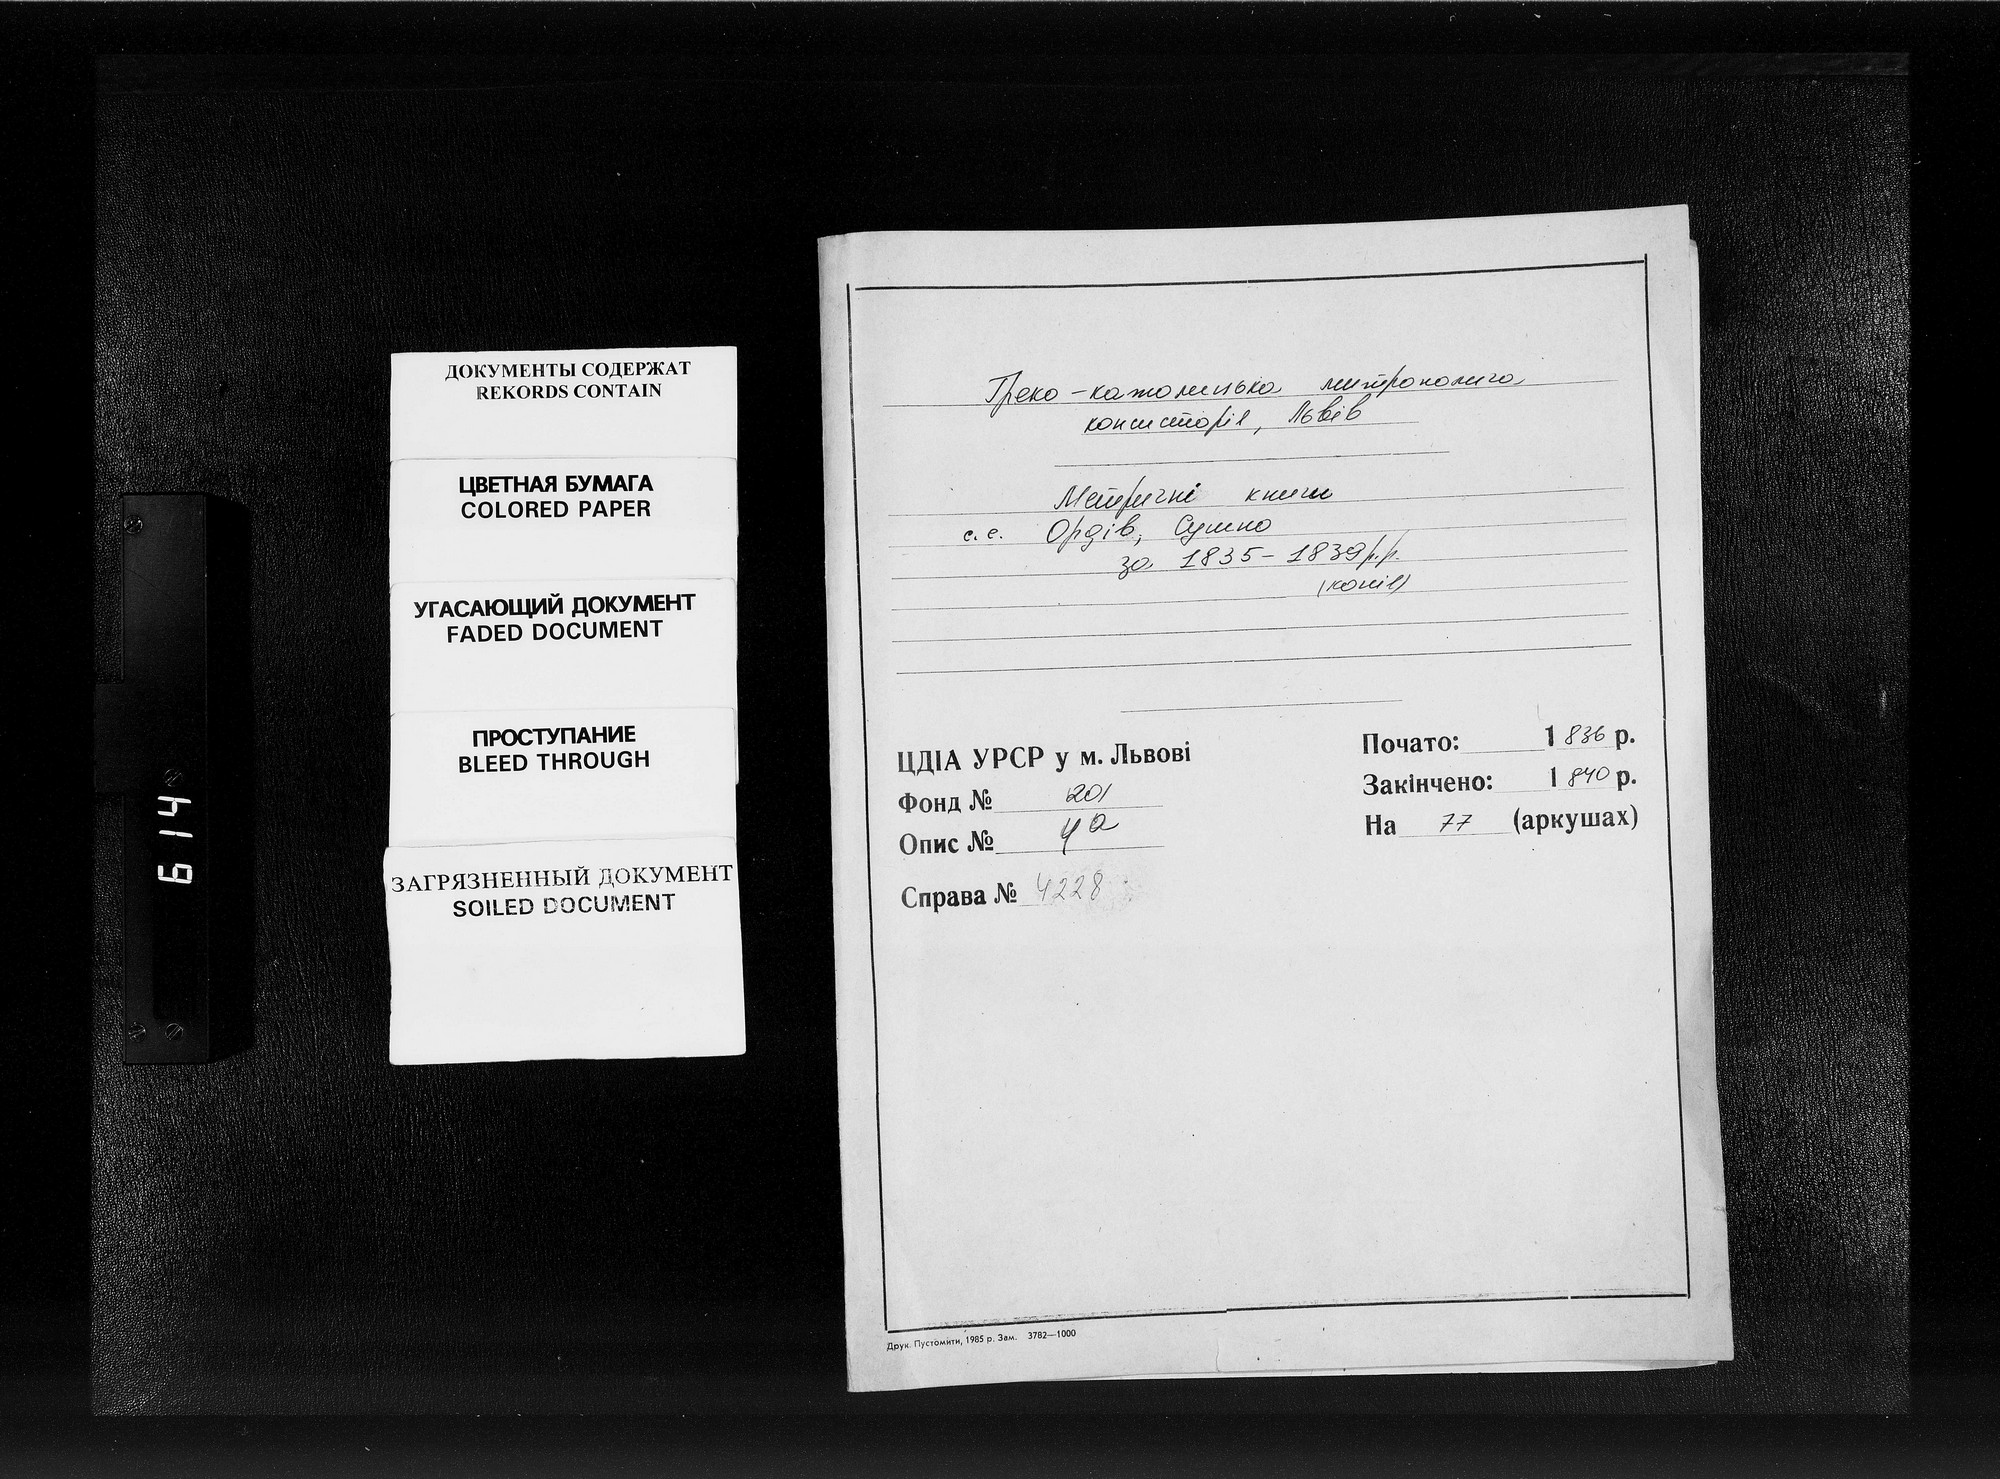 ДОКУМЕНТЫ СОДЕРЖАТ
REKORDS CONTAIN
ЦВЕТНАЯ БУМАГА
COLORED PAPER
УГАСАЮЩИЙ ДОКУМЕНТ
FADED DOCUMENT
ПРОСТУПАНИЕ
BLEED THROUGH
ЗАГРЯЗНЕННЫЙ ДОКУМЕНТ
SOILED DOCUMENT
614
Греко-католицька митрополича
консисторія, Львів
Метричні книги
с.с. Ордів, Сушно
за 1835-1839 р.р.
(копія)
ЦДІА УРСР у м. Львові
Фонд № 201
Опис № 4а
Справа № 4228
Почато: 1836 р.
Закінчено: 1840 р.
На 77 (аркушах)
Друк. Пустомити, 1985 р. Зам. 3782—1000